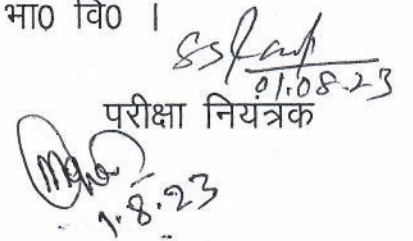 भा0 वि0 ।
01.08.23
परीक्षा नियंत्रक
1.8.23